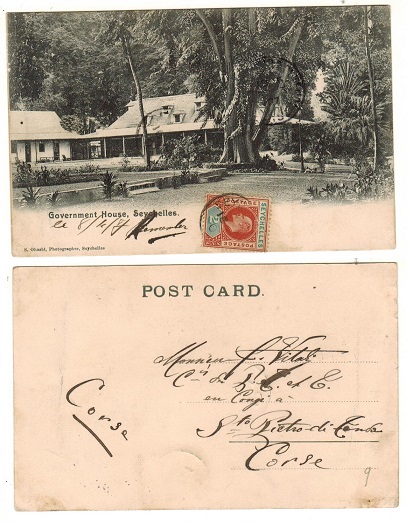 Government House, Seychelles.
le 8/4/
S. Ohashi, Photographer, Seychelles
SEYCHELLES
POSTAGE
POST CARD.
Monsieur Vitali
en Congé à
Sto Pietro-di-
Corse
Corse
9